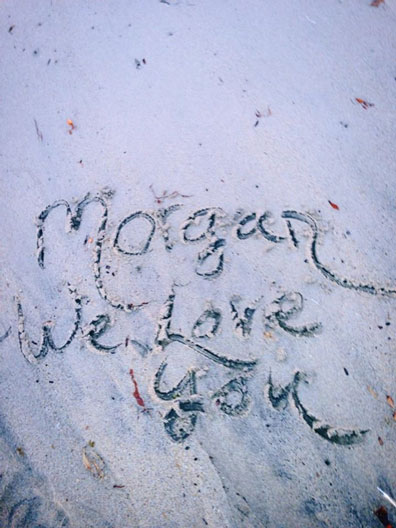 Morgan
We Love
You